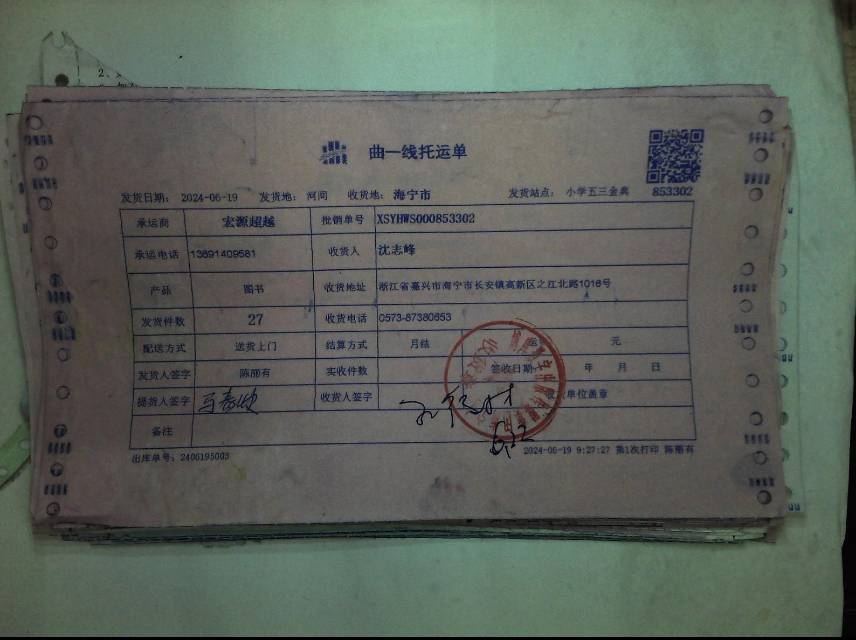 曲一线托运单
发货日期: 2024-06-19 发货地: 河间 收货地: 海宁市 发货站点: 小学五三金典 853302
承运商 宏源超越 批销单号 XSYHWS000853302
承运电话 13691409581 收货人 沈志峰
产品 图书 收货地址 浙江省嘉兴市海宁市长安镇高新区之江北路1016号
发货件数 27 收货电话 0573-87380653
配送方式 送货上门 结算方式 月结 元
发货人签字 陈丽有 实收件数 签收日期: 年 月 日
提货人签字 收货人签字 单位盖章
备注
6.22
出库单号: 2406195003 2024-06-19 9:27:27 第1次打印 陈丽有